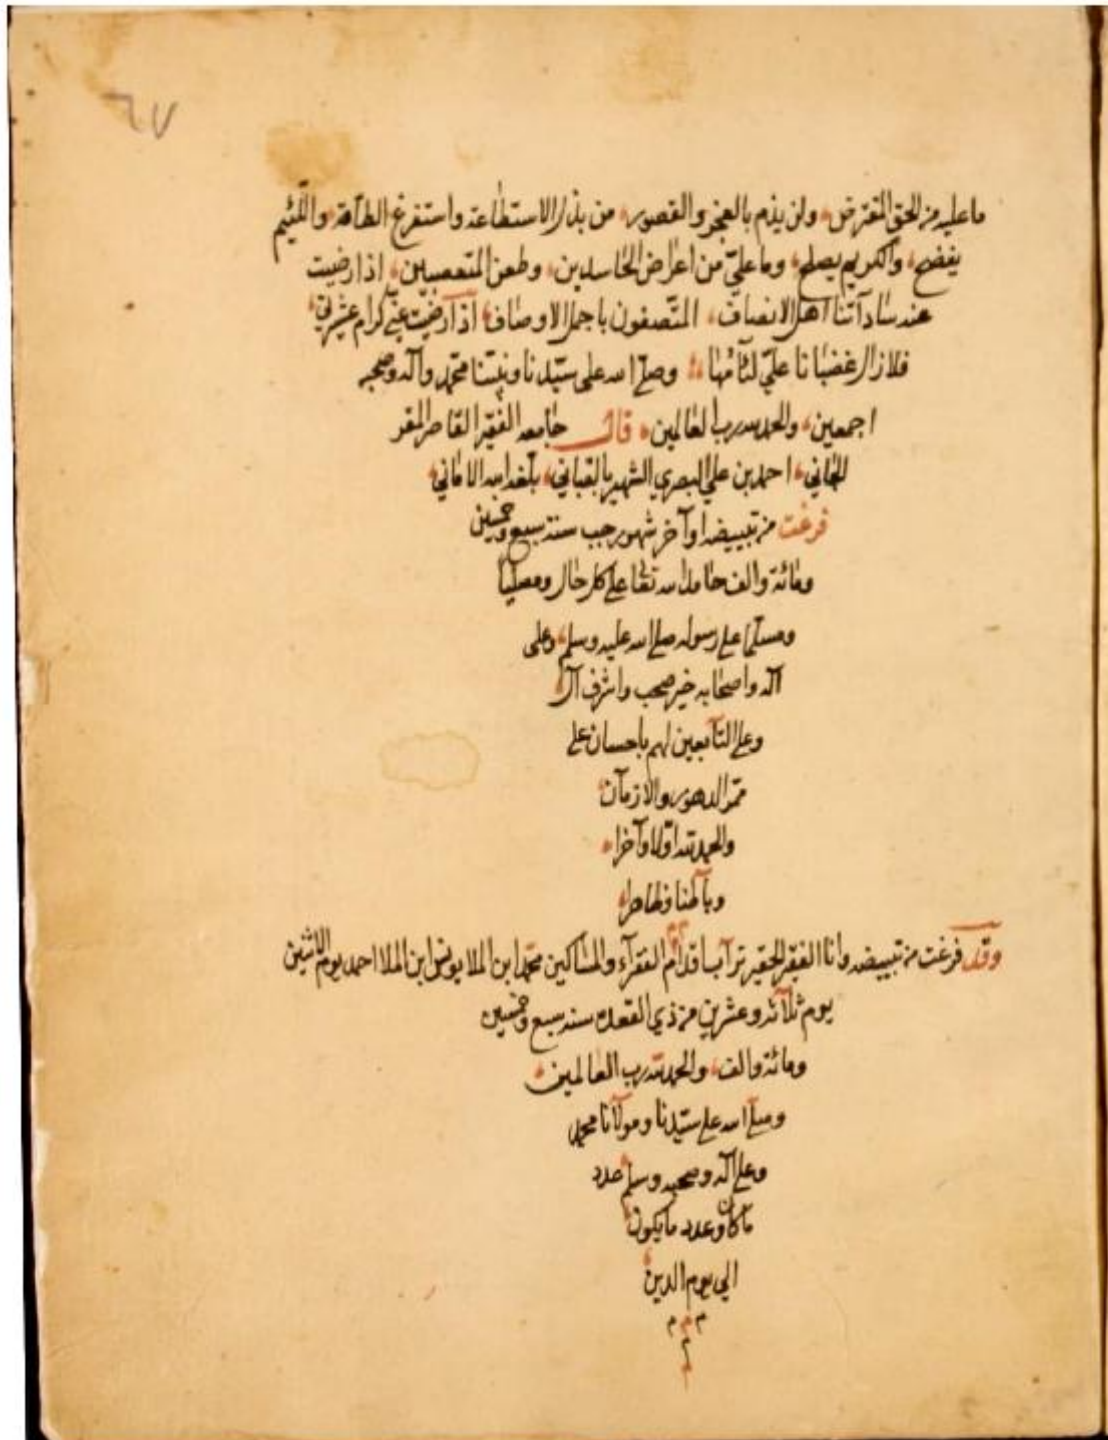 ٦٧
ما عليه من الحق المفترض، ولن يذم بالعجز والقصور، من بذل الاستطاعة واستفرغ الطاقة، واللئيم
يفضح، والكريم يصلح، وما عليّ من اعراض الحاسدين، وطعن المتعصبين، اذا رضيت
عند ساداتنا اهل الانصاف، المتصفون باجمل الاوصاف، اذا رضيت عني كرام عشيرتي
فلا زال غضبانا عليّ لئامها، وصلى الله على سيدنا ونبينا محمد وآله وصحبه
اجمعين، والحمد لله رب العالمين، قال جامعه الفقير القاصر المقر
الجاني، احمد بن علي البصري الشهير بالقباني، بلغه الله الاماني
فرغت من تبييضه اواخر شهر رجب سنة سبع وخمسين
ومائة والف حامدا لله تعالى على كل حال ومصليا
ومسلما على رسوله صلى الله عليه وسلم، وعلى
آله واصحابه خير صحب واشرف آل
وعلى التابعين لهم باحسان على
ممر الدهور والازمان
والحمد لله اولا وآخرا
وباطنا وظاهرا
وقد فرغت من تبييضه وانا الفقير الحقير تراب اقدام الفقراء والمساكين محمد ابن الملا يونس ابن الملا احمد يوم الاثنين
يوم ثلاثة وعشرين من ذي القعده سنة سبع وخمسين
ومائة والف، والحمد لله رب العالمين
وصلى الله على سيدنا ومولانا محمد
وعلى آله وصحبه وسلم عدد
ما كان وعدد ما يكون
الى يوم الدين
م م م
م
م